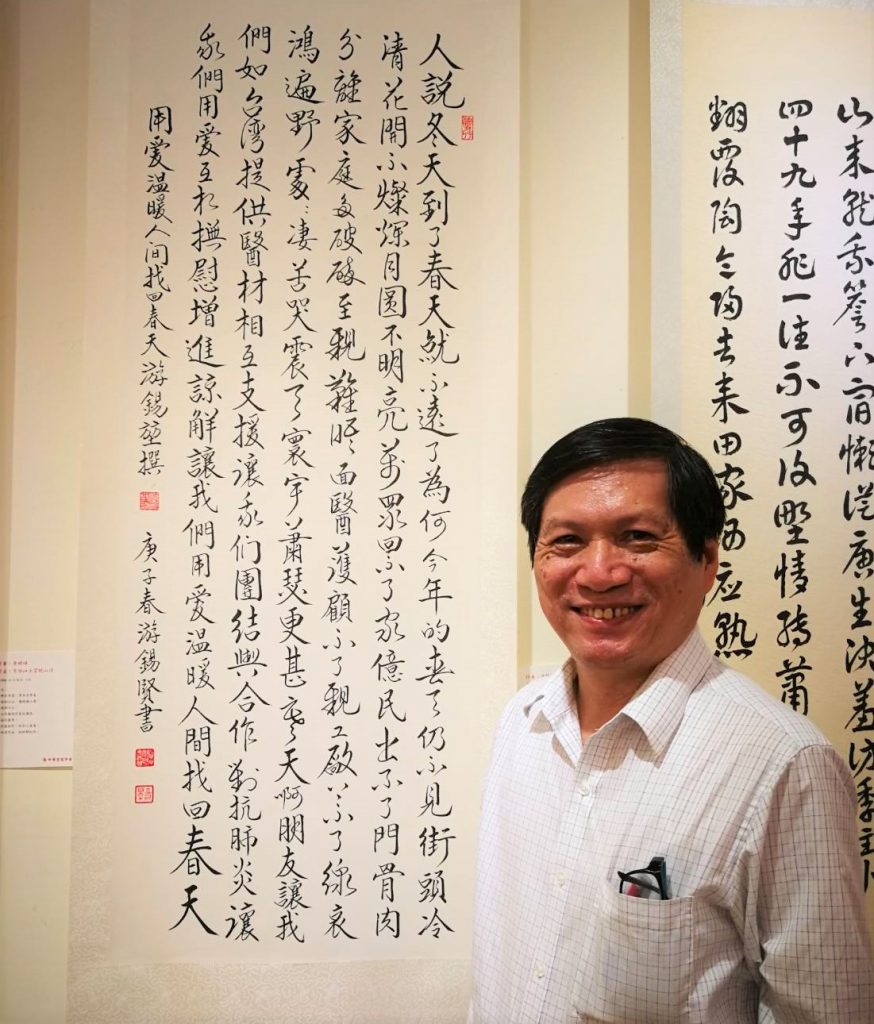 山來就我簷下宿懶從唐生決羞訪季主卜
四十九年非一往不可復野情轉蕭
翻覆陶令歸去來田家酒應熟
人說冬天到了春天就不遠了為何今年的春天仍不見街頭冷
清花開不燦爛月圓不明亮萬眾了家億民出不了門骨肉
分離家庭多破碎至親難面醫護顧不了親工廠不了線哀
鴻遍野處處凄苦哭震了寰宇蕭瑟更甚寒天啊朋友讓我
們如台灣提供醫材相互支援讓我们團結與合作對抗肺炎讓
我們用愛互相撫慰增進諒解讓我們用愛溫暖人間找回春天
用愛溫暖人间找回春天游錫堃撰
庚子春游錫賢書